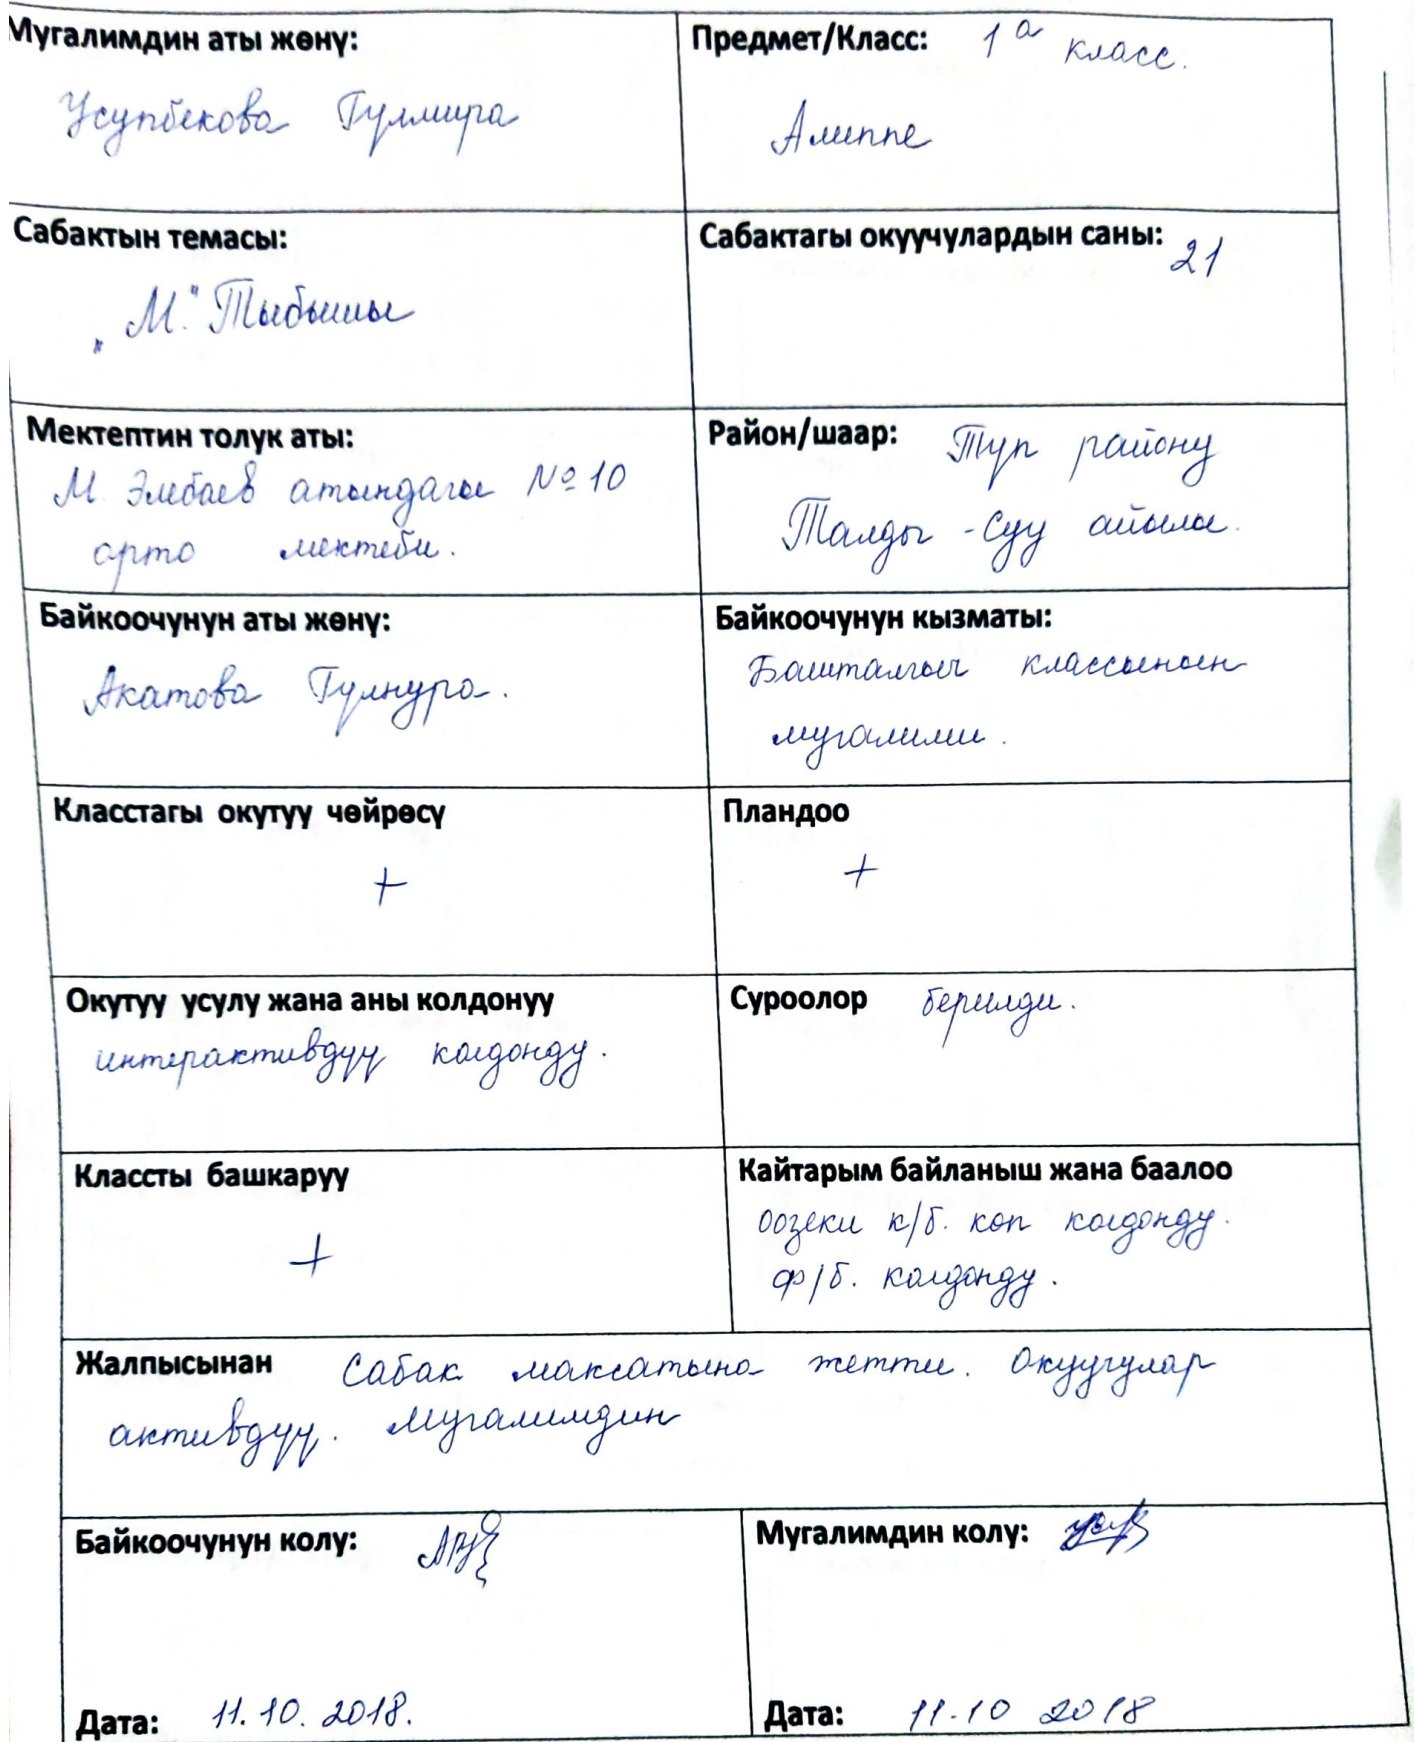 Мугалимдин аты жөнү:
Усупбекова Гулмира
Предмет/Класс: 1 а класс.
Алиппе
Сабактын темасы:
"М." Тыбышы
Сабактагы окуучулардын саны: 21
Мектептин толук аты:
М Элебаев атындагы №10
орто мектеби.
Район/шаар: Түп району
Талды-Суу айылы.
Байкоочунун аты жөнү:
Акатова Гулнура.
Байкоочунун кызматы:
Башталгыч классынын
мугалими.
Класстагы окутуу чөйрөсү
+
Пландоо
+
Окутуу усулу жана аны колдонуу
интерактивдүү колдонду.
Суроолор берилди.
Классты башкаруу
+
Кайтарым байланыш жана баалоо
оозеки к/б. көп колдонду.
ф/б. колдонду.
Жалпысынан Сабак максатына жетти. Окуучулар
активдүү. Мугалимдин
Байкоочунун колу:
Мугалимдин колу:
Дата: 11.10.2018.
Дата: 11.10 2018